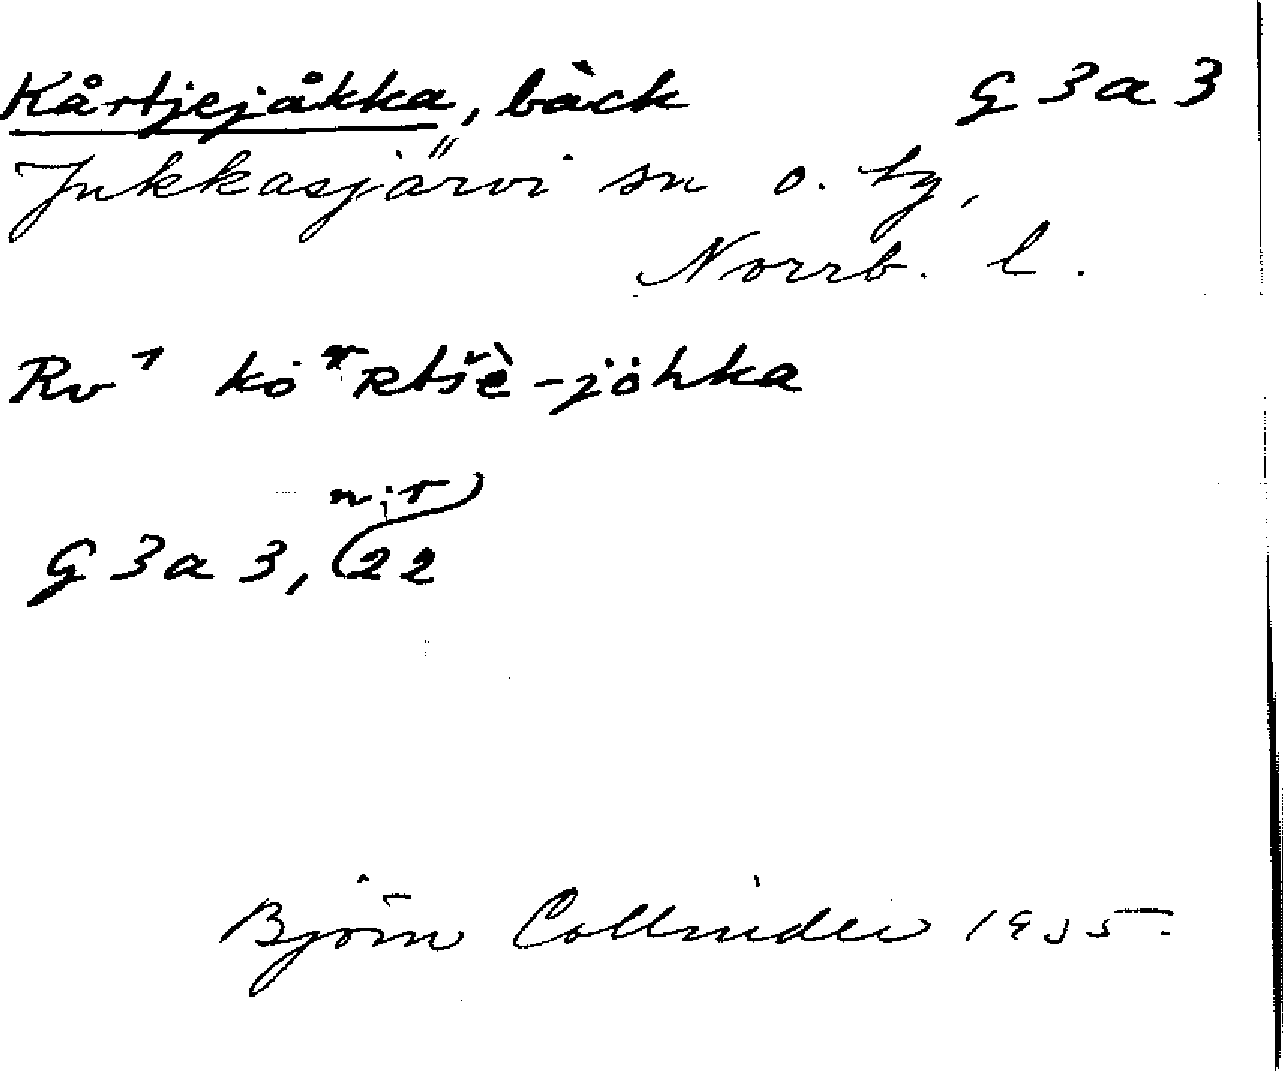 Kårtjejåkka, bäck G 3 a 3
Jukkasjärvi sn o. tg,
Norrb. l.
Rv¹ -jȯhka
n; r
G 3 a 3, 22
Björn Collinder 1955.